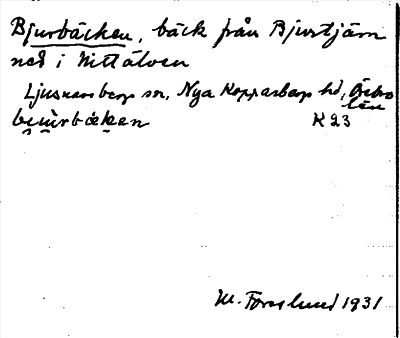 Bjurbäcken, bäck från Bjurtjärn
ned i Nittälven
Ljusnarsberg sn, Nya Kopparberg hd, Örebro
län
bjùrbäkan
K 23
M. Forslund 1931